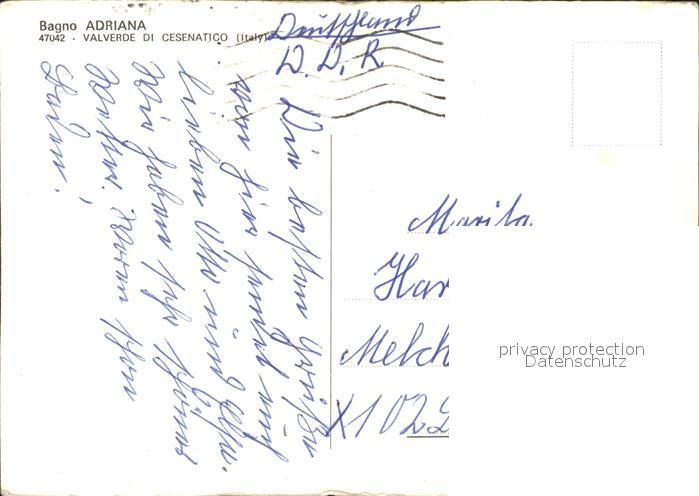 Bagno ADRIANA
47042 - VALVERDE DI CESENATICO (Italy)
Deutschland
D. D. R.
Die besten Grüße
von hier sendet euch
lieben Otto und
Wir haben sehr schönes
Wetter. Waren schon
Baden!
Marita
Har
Melch
X102
privacy protection
Datenschutz